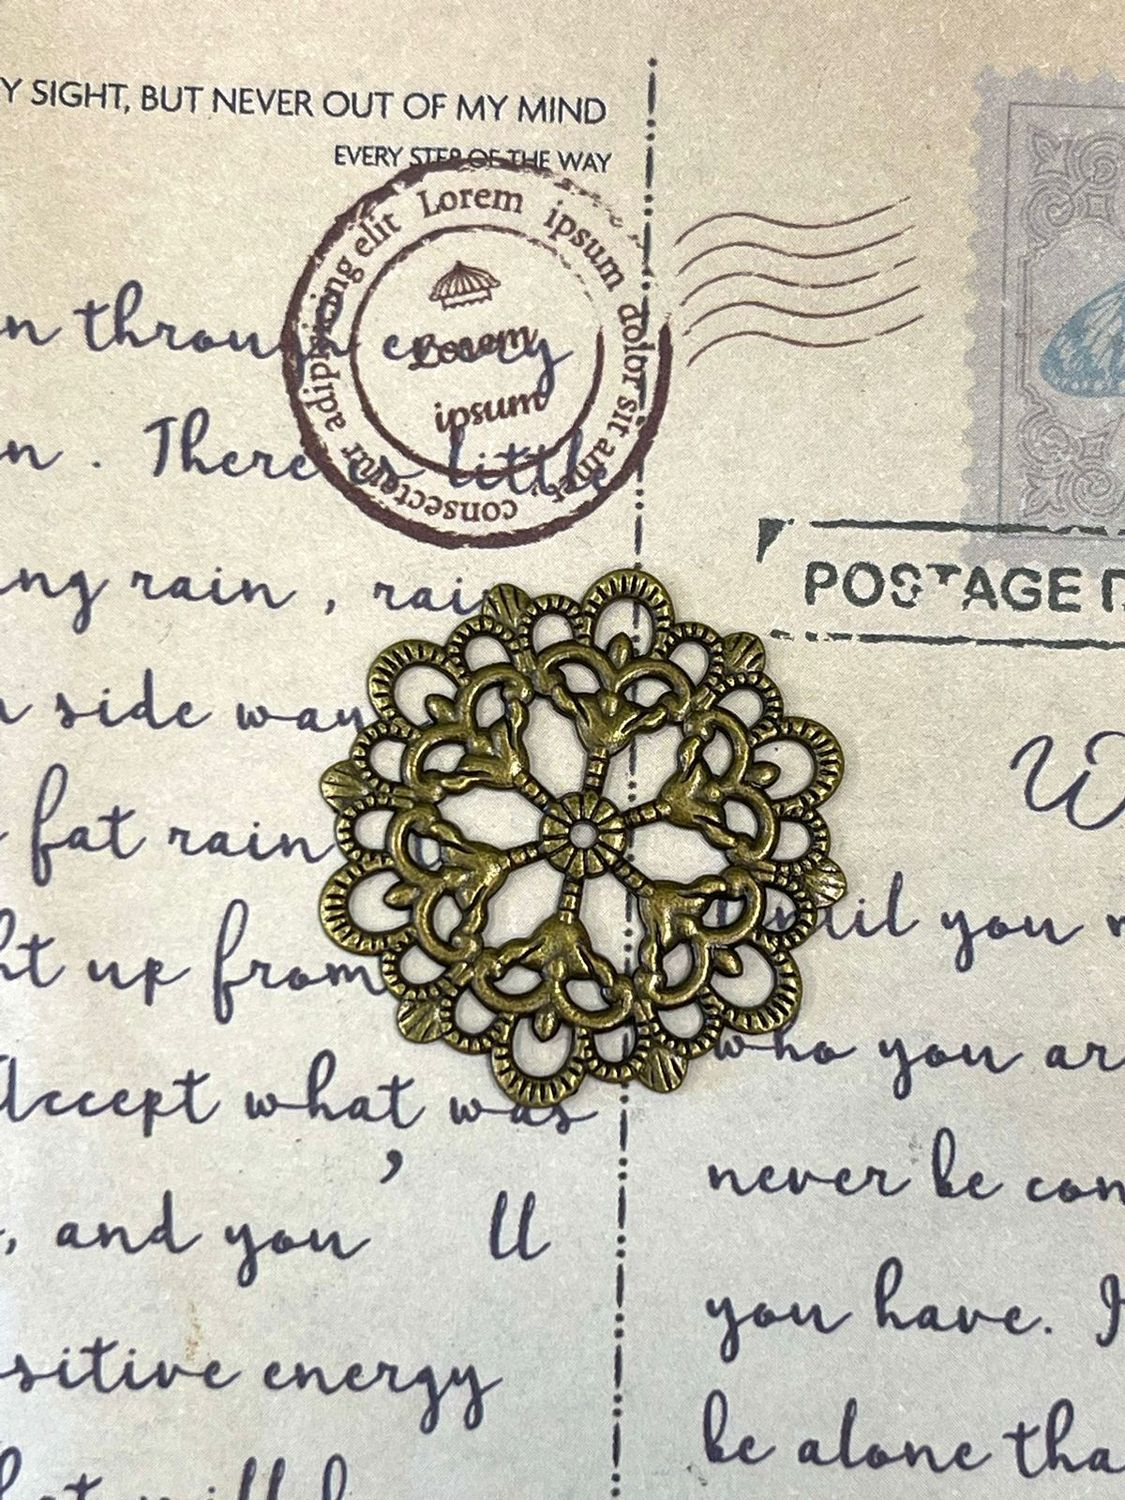 Y SIGHT, BUT NEVER OUT OF MY MIND
EVERY STEP OF THE WAY
Lorem ipsum dolor sit amet, consectetur adipisicing elit
Lorem
ipsum
n through every
n . There is little
ing rain , rai
side way
fat rain
ht up from
Accept what was
, and you ’ ll
sitive energy
POSTAGE
W
until you
who you ar
never be con
you have. I
be alone tha